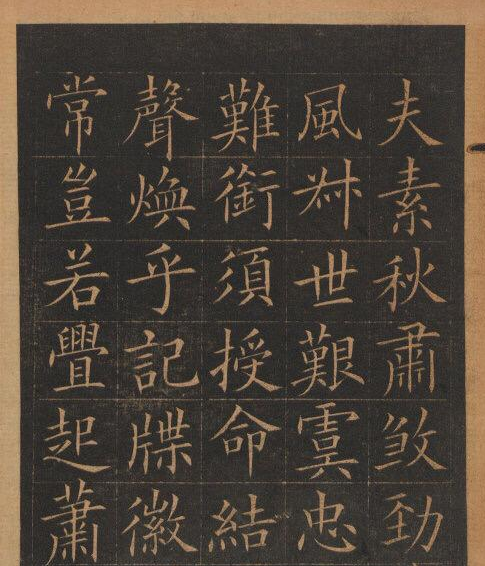 夫素秋肅煞勁
風叔世艱虞忠
難銜須授命結
聲煥乎記牒徽
常豈若舋起蕭